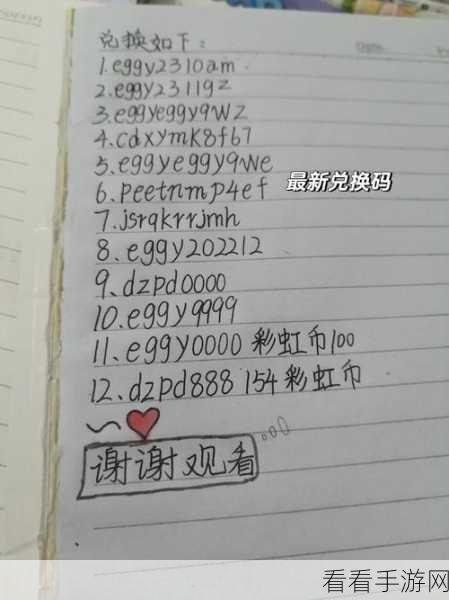 兑换如下：
1.eggy2310am
2.eggy2311gz
3.eggyeggy9wz
4.cdxymk8f67
5.eggyeggy9we
6.peetnmp4ef
最新兑换码
7.jsrqkrrjmh
8.eggy202212
9、dzpd0000
10.eggy9999
11、eggy0000 彩虹币100
12、dzpd888 154彩虹币
谢谢观看
看看手游网